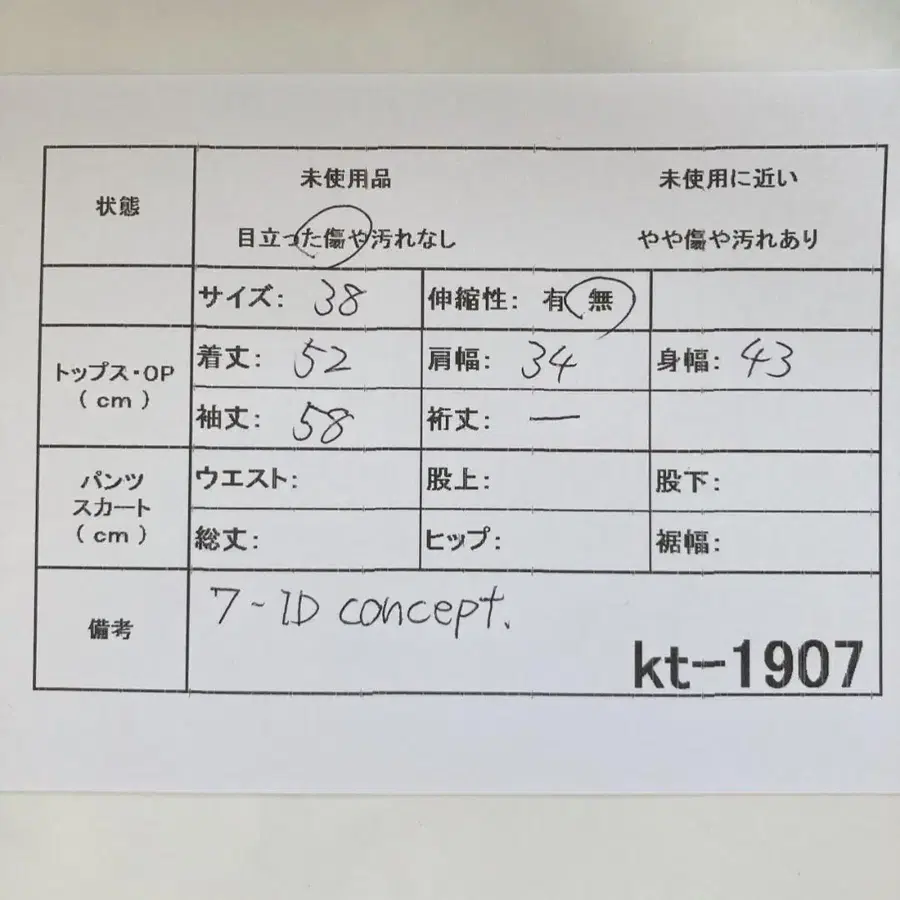 状態
未使用品 未使用に近い
目立った傷や汚れなし やや傷や汚れあり
サイズ: 38 伸縮性: 有 無
トップス・OP
(cm)
着丈: 52 肩幅: 34 身幅: 43
袖丈: 58 裄丈: ー
パンツ
スカート
(cm)
ウエスト: 股上: 股下:
総丈: ヒップ: 裾幅:
備考
7-ID concept.
kt-1907